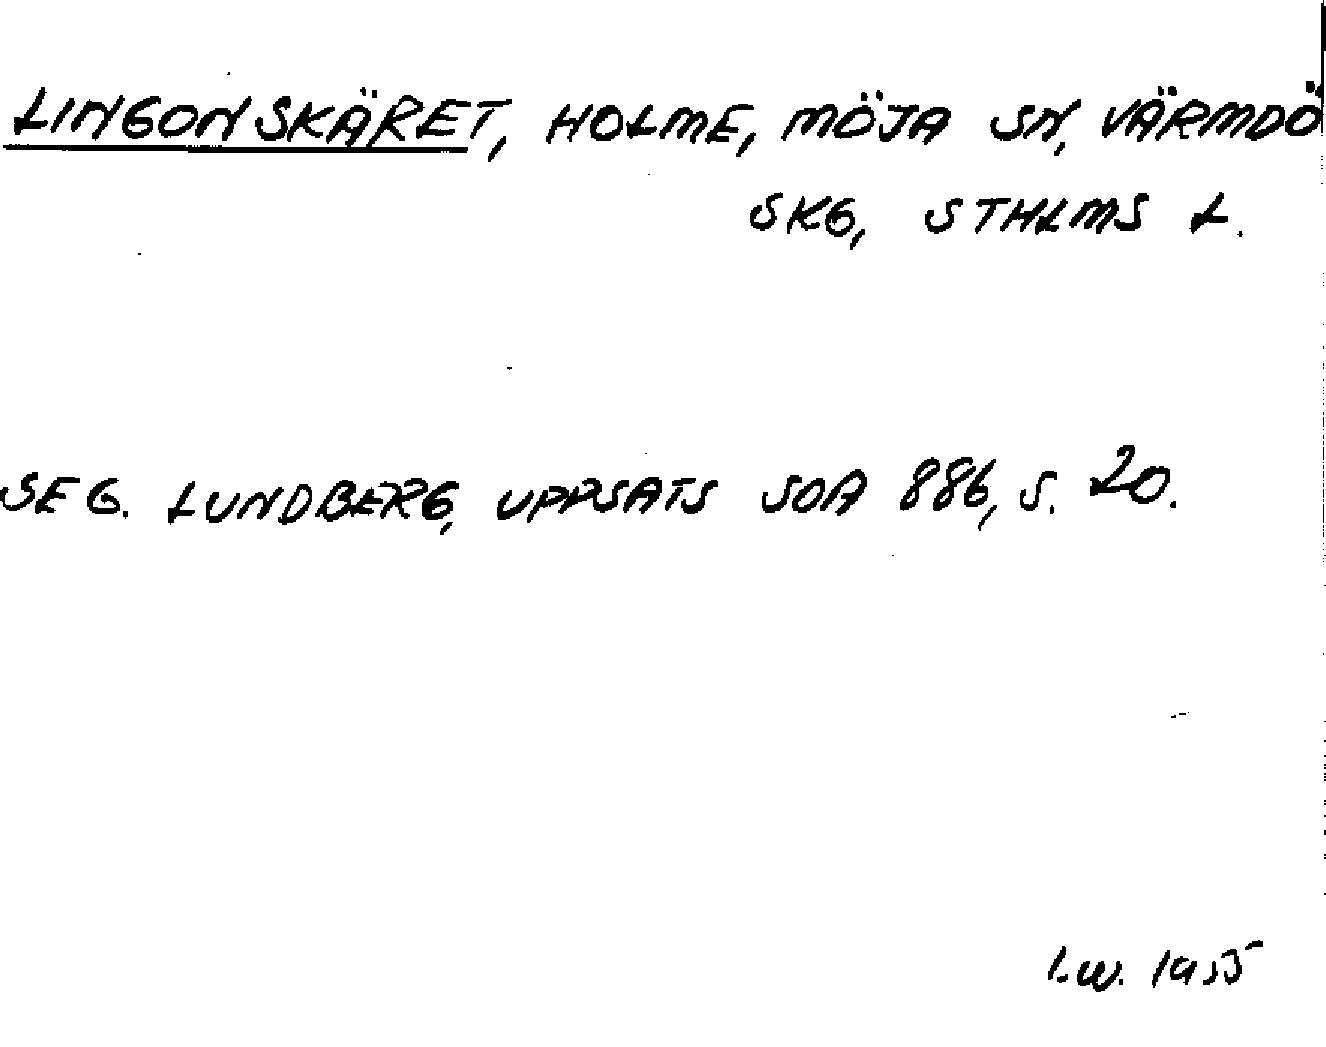 LINGONSKÄRET, HOLME, MÖJA SN, VÄRMDÖ
SKG, STHLMS L.
SE G. LUNDBERG, UPPSATS SOA 886, S. 20.
I.W. 1955